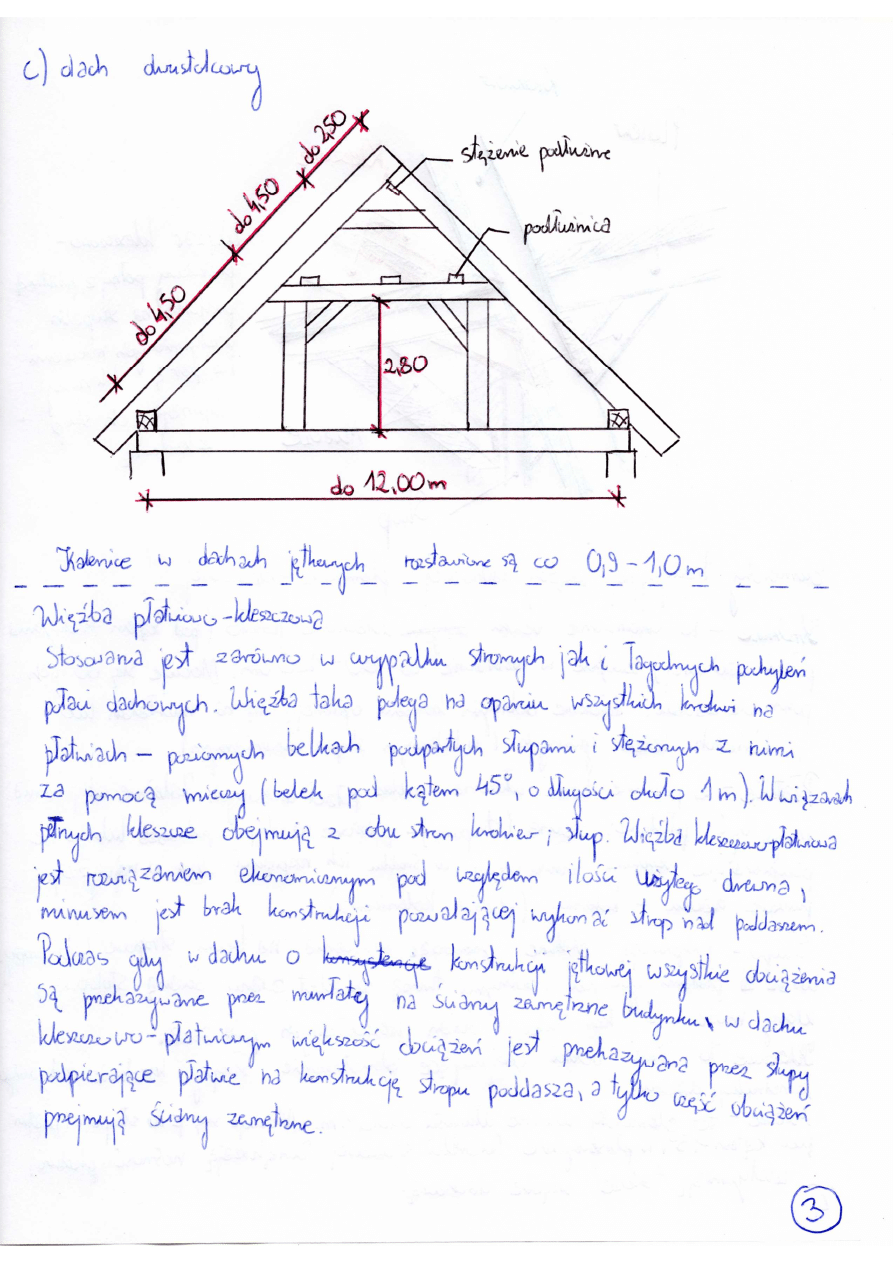 c) dach dwustolcowy
do 2,50
stężenie podłużne
do 4,50
podłużnica
do 4,50
2,80
do 12,00m
Kalenice w dachach jętkowych rozstawione są co 0,9 - 1,0m
Więźba płatwiowo-kleszczowa
Stosowana jest zarówno w wypadku stromych jak i łagodnych pochyleń
połaci dachowych. Więźba taka polega na oparciu wszystkich krokwi na
płatwiach - poziomych belkach podpartych słupami i stężonych z nimi
za pomocą mieczy (belek pod kątem 45°, o długości około 1m). W wiązarach
pełnych kleszcze obejmują z obu stron krokiew i słup. Więźba kleszczowopłatwiowa
jest rozwiązaniem ekonomicznym pod względem ilości użytego drewna,
minusem jest brak konstrukcji pozwalającej wykonać strop nad poddaszem.
Podczas gdy w dachu o konstrukcji jętkowej wszystkie obciążenia
są przekazywane przez murłatę na ściany zewnętrzne budynku, w dachu
kleszczowo-płatwiowym większość obciążeń jest przekazywana przez słupy
podpierające płatwie na konstrukcję stropu poddasza, a tylko część obciążeń
przejmują ściany zewnętrzne.
3